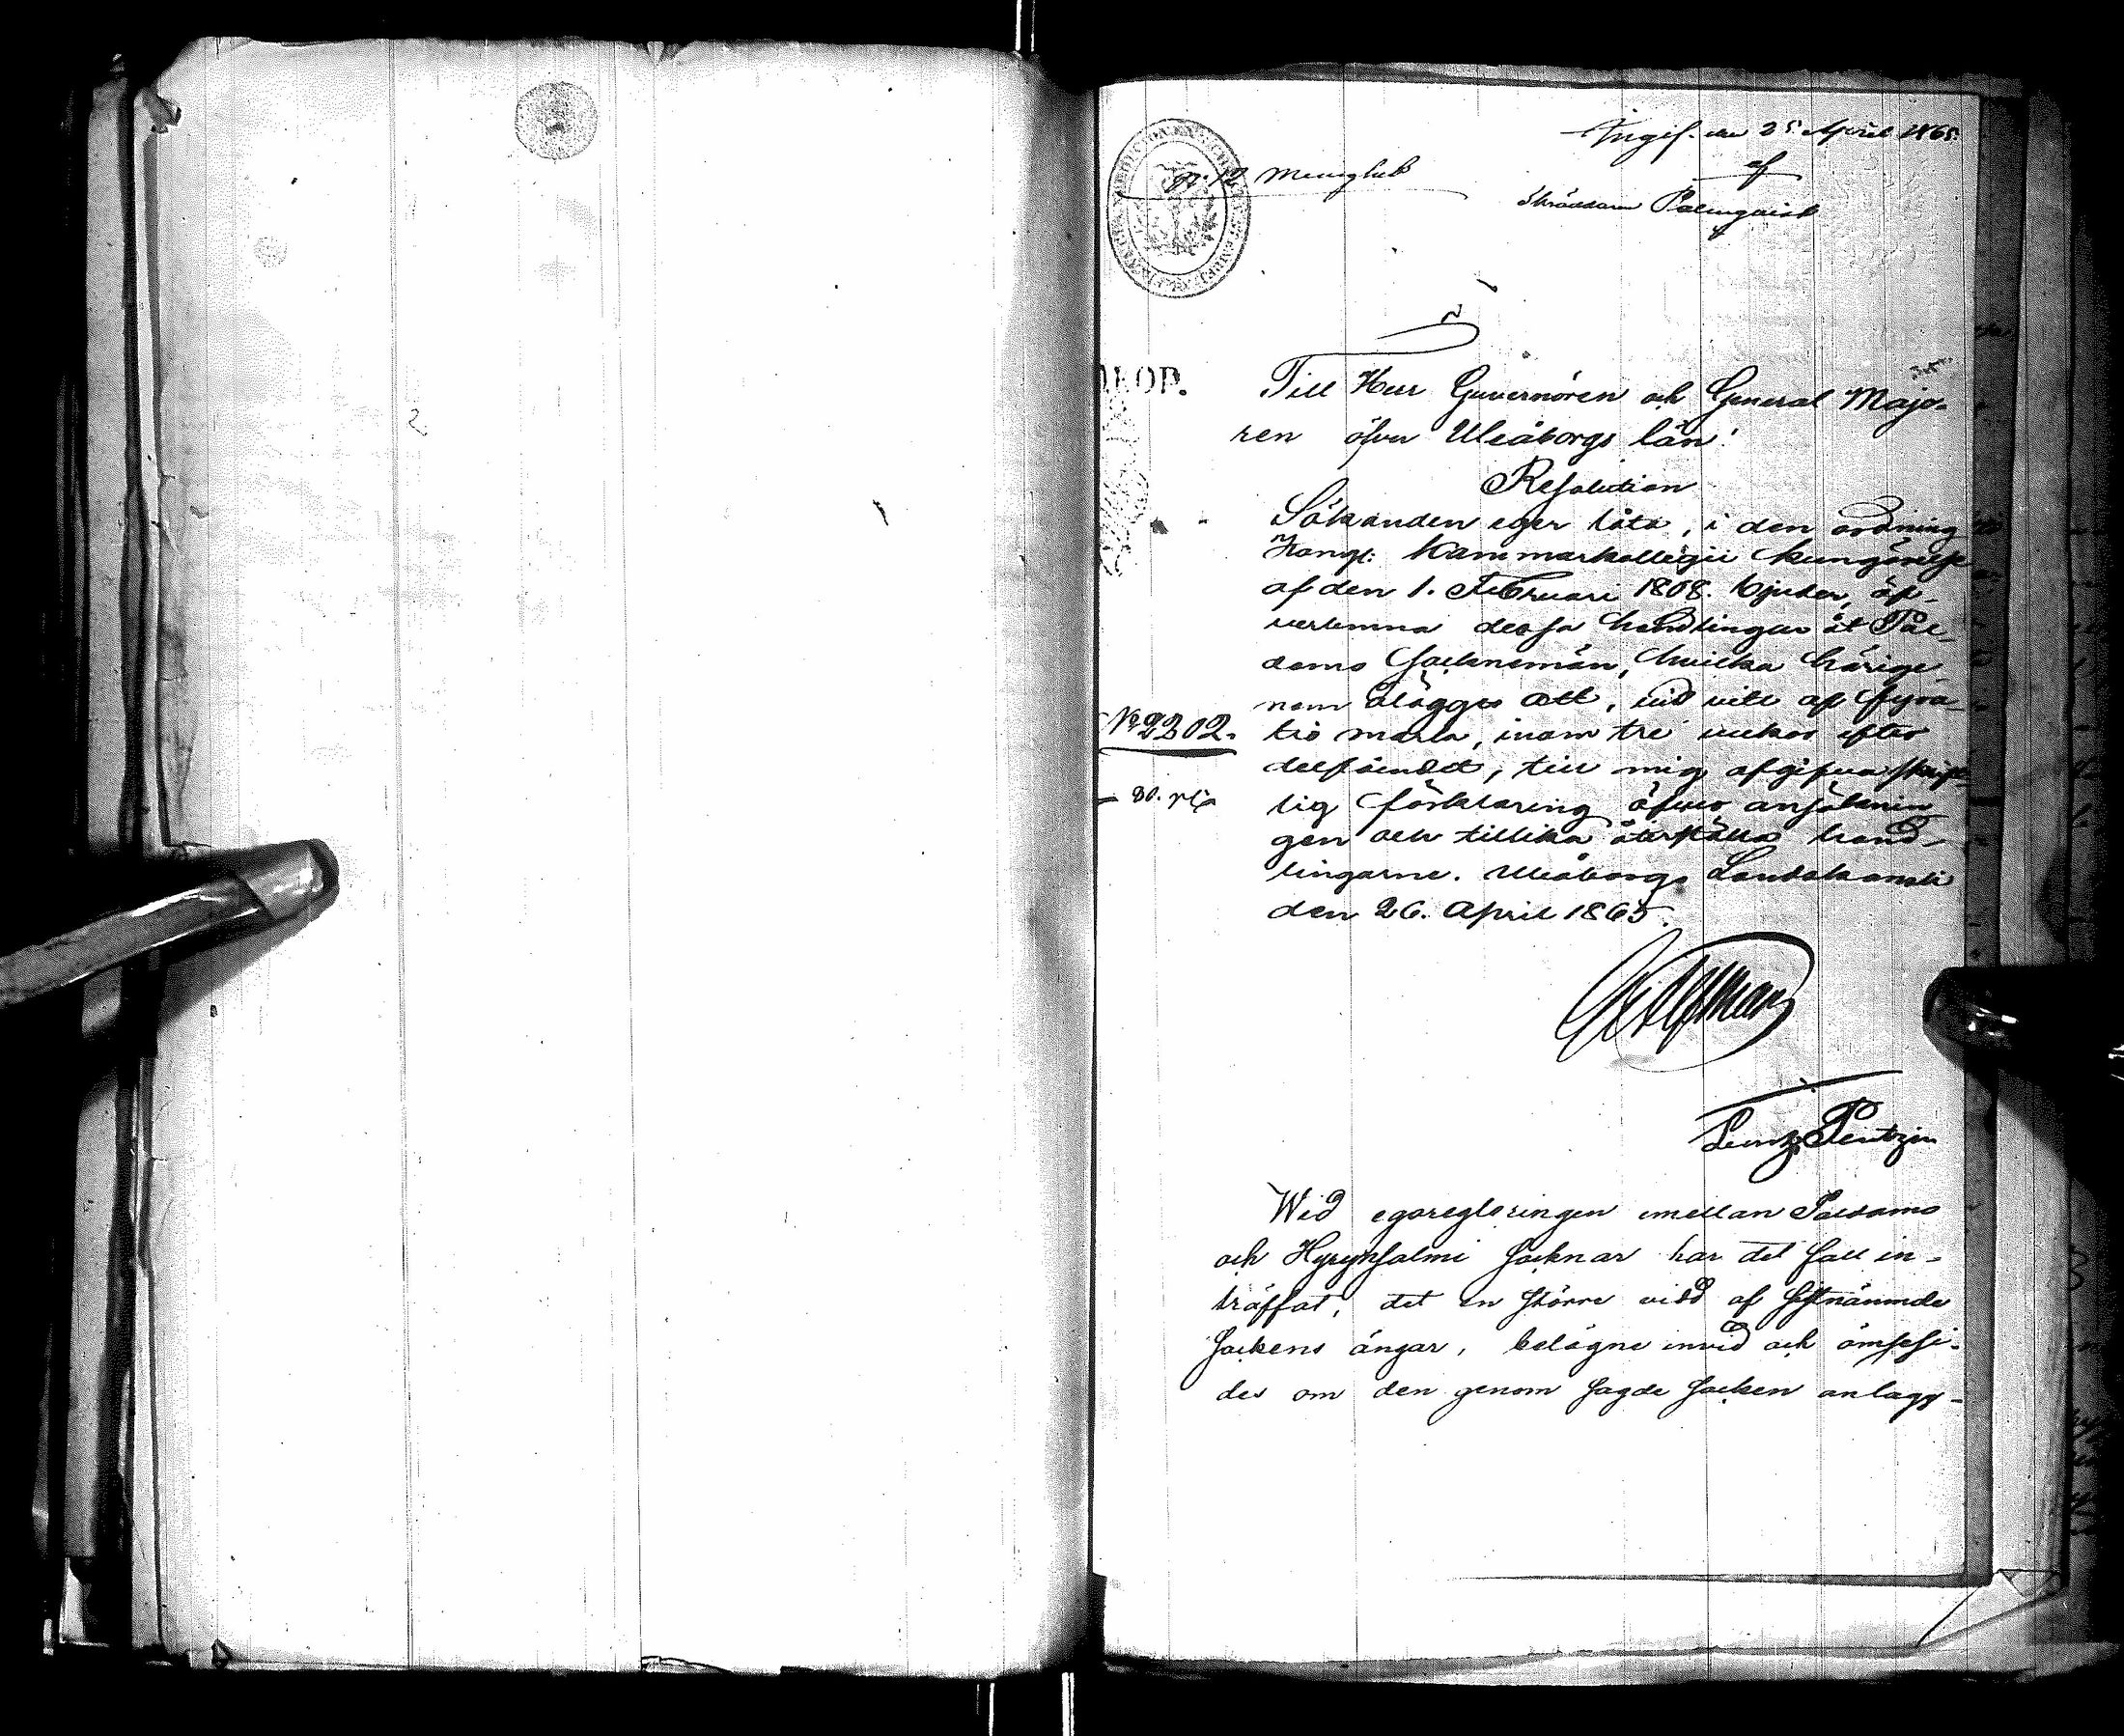 Ingif. den 25 April 1865.
af
Skräddaren Palmqvist
КОР.
Till Herr Guvernören och General Majo-
ren öfver Uleåborgs län!
Resolution
Sökanden eger låta, i den ordning
Kongl: Kammarkollegii kungörelse
af den 1. Februari 1808. bjuder, öf-
verlemna dessa handlingar åt Pal-
damo Socknemän, hvilka härige-
nom ålägges att, vid vite af fyra-
tio mark, inom tre veckor efter
delfåendet, till mig afgifva skrift-
lig förklaring öfver ansöknin
gen och tillika återställa hand-
lingarne. Uleåborgs Landskansli
den 26. April 1865.
№ 2202.
Wid egoregleringen emellan Paldamo
och Hyrynsalmi Socknar har det fall in-
träffat, det en större vidd af sistnämnde
Sockens ängar, belägne invid och ömsesi-
des om den genom sagde Socken anlagg-